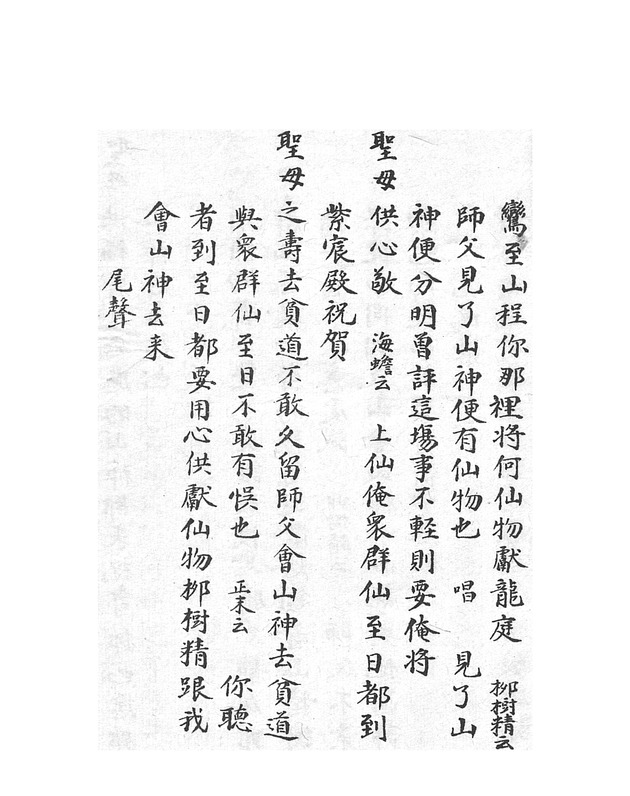 鸞至山程你那裡將何仙物獻龍庭 柳樹精云
師父見了山神便有仙物也 唱 見了山
神便分明曾評這塲事不輕則要俺將
聖母供心敬 海蟾云 上仙俺衆群仙至日都到
紫宸殿祝賀
聖母之壽去貧道不敢久留師父會山神去貧道
與衆群仙至日不敢有悮也 正末云 你聽
者到至日都要用心供獻仙物柳樹精跟我
會山神去来
尾聲